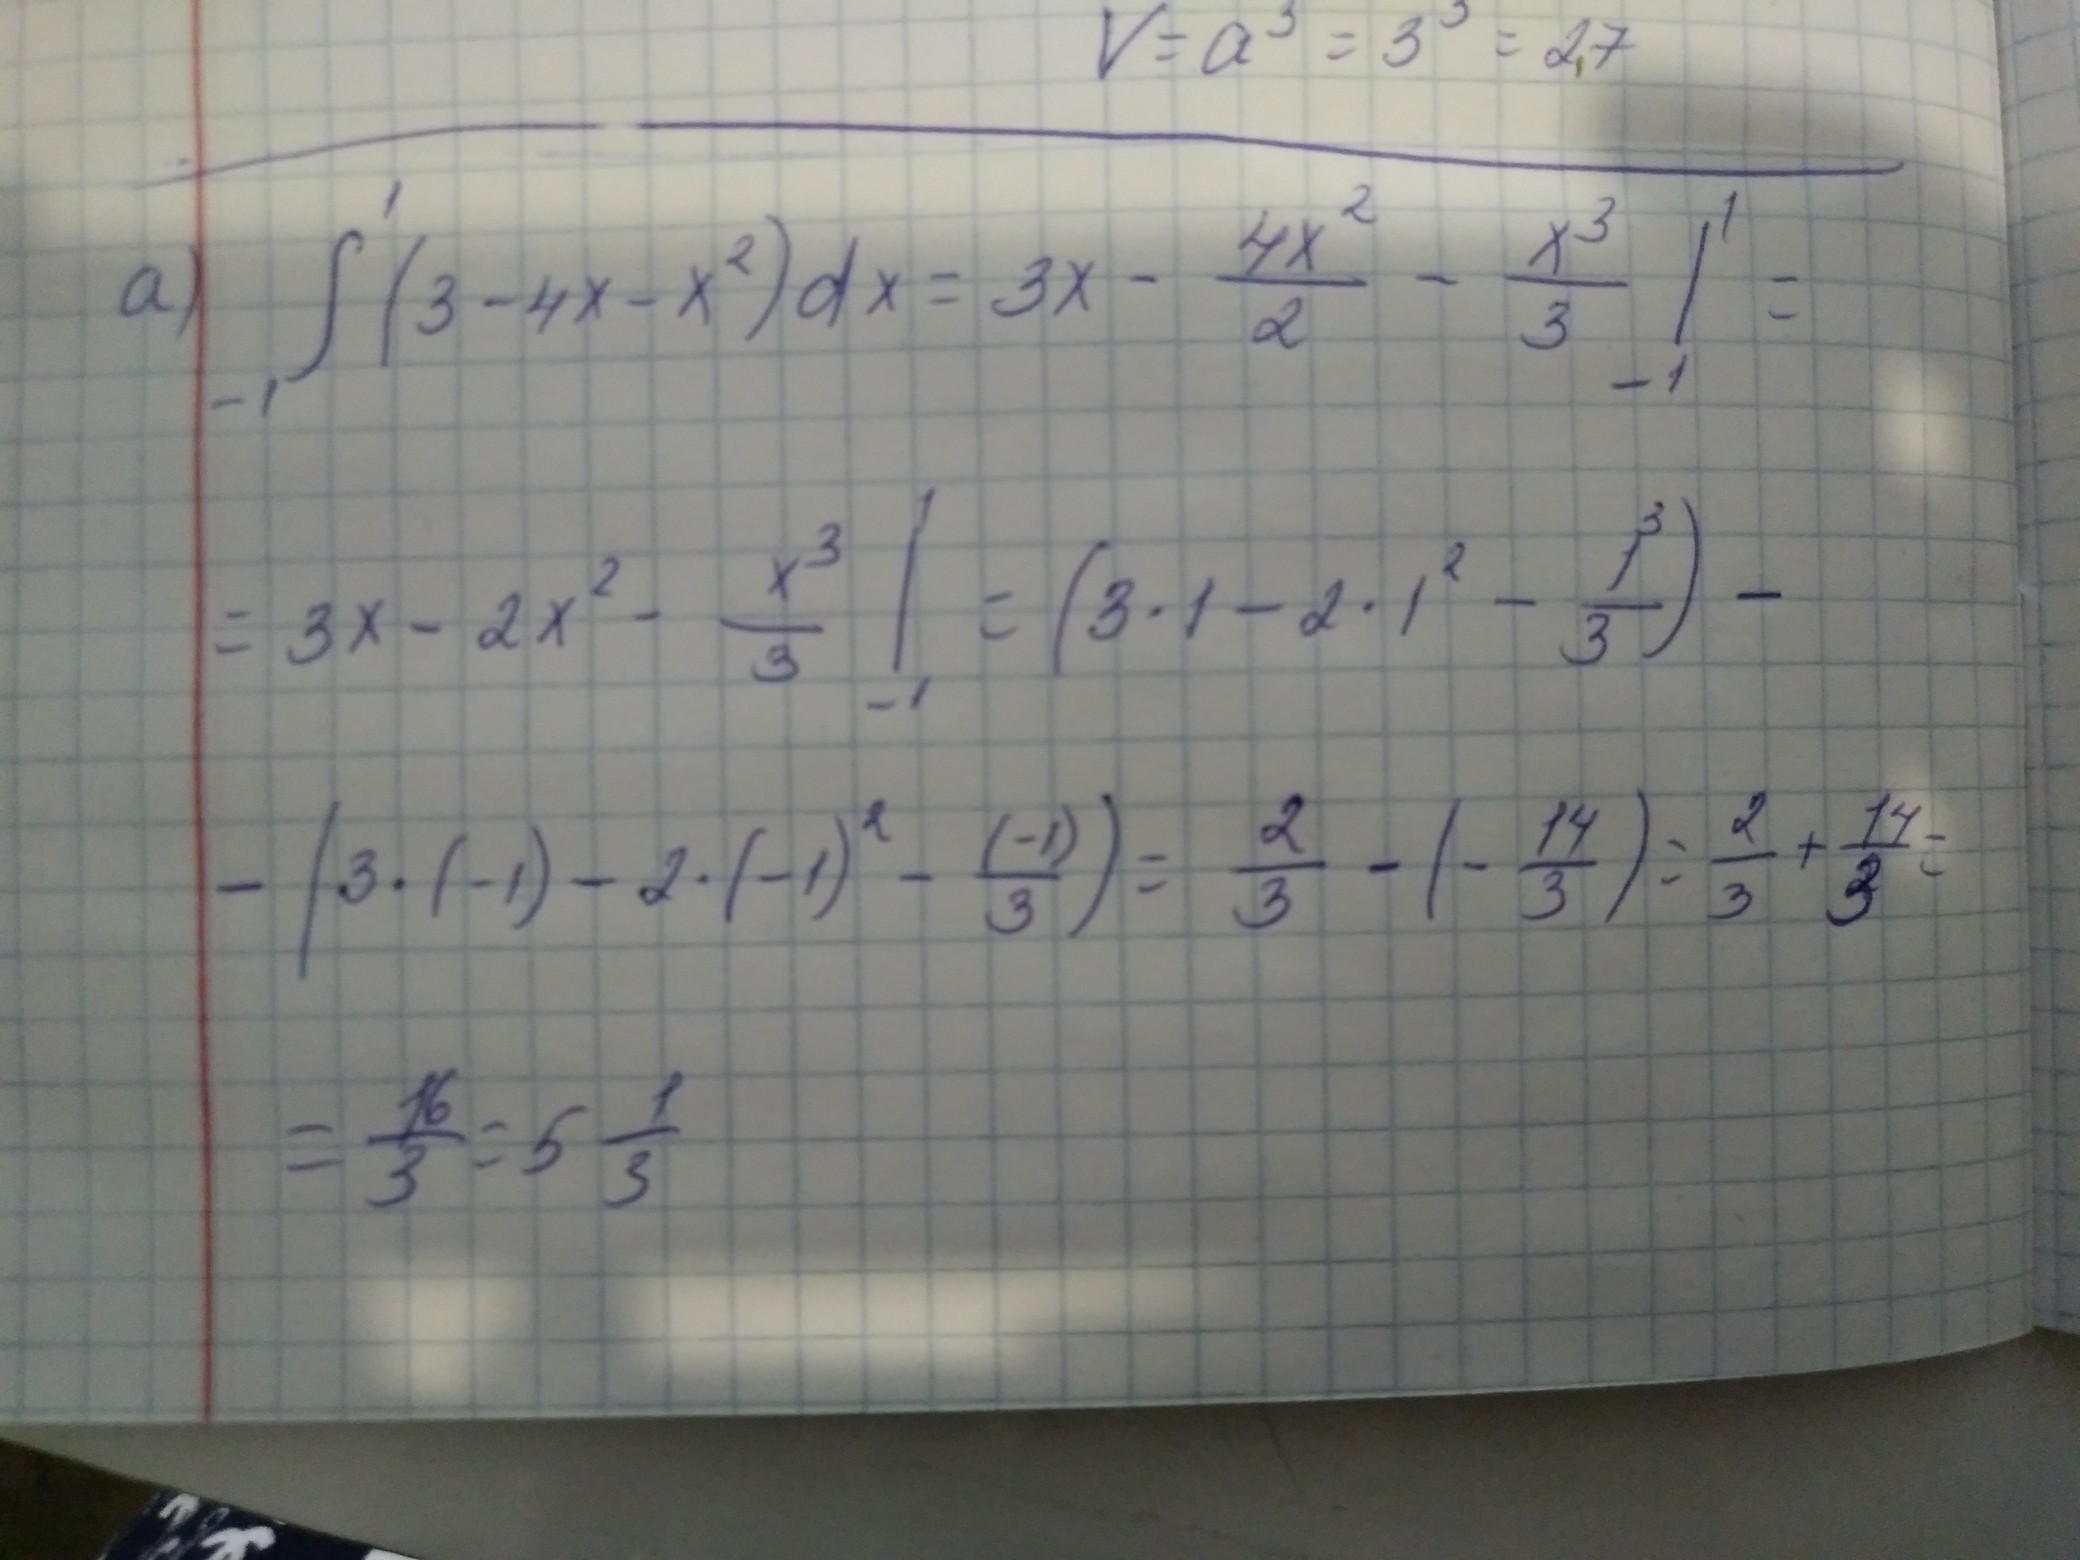 V = a³ = 3³ = 2,7
a) ∫₋₁¹ (3 - 4x - x²) dx = 3x - 4x²/2 - x³/3 |₋₁¹ =
= 3x - 2x² - x³/3 |₋₁¹ = (3·1 - 2·1² - 1³/3) -
- (3·(-1) - 2·(-1)² - (-1)/3) = 2/3 - (-14/3) = 2/3 + 14/3 =
= 16/3 = 5 1/3